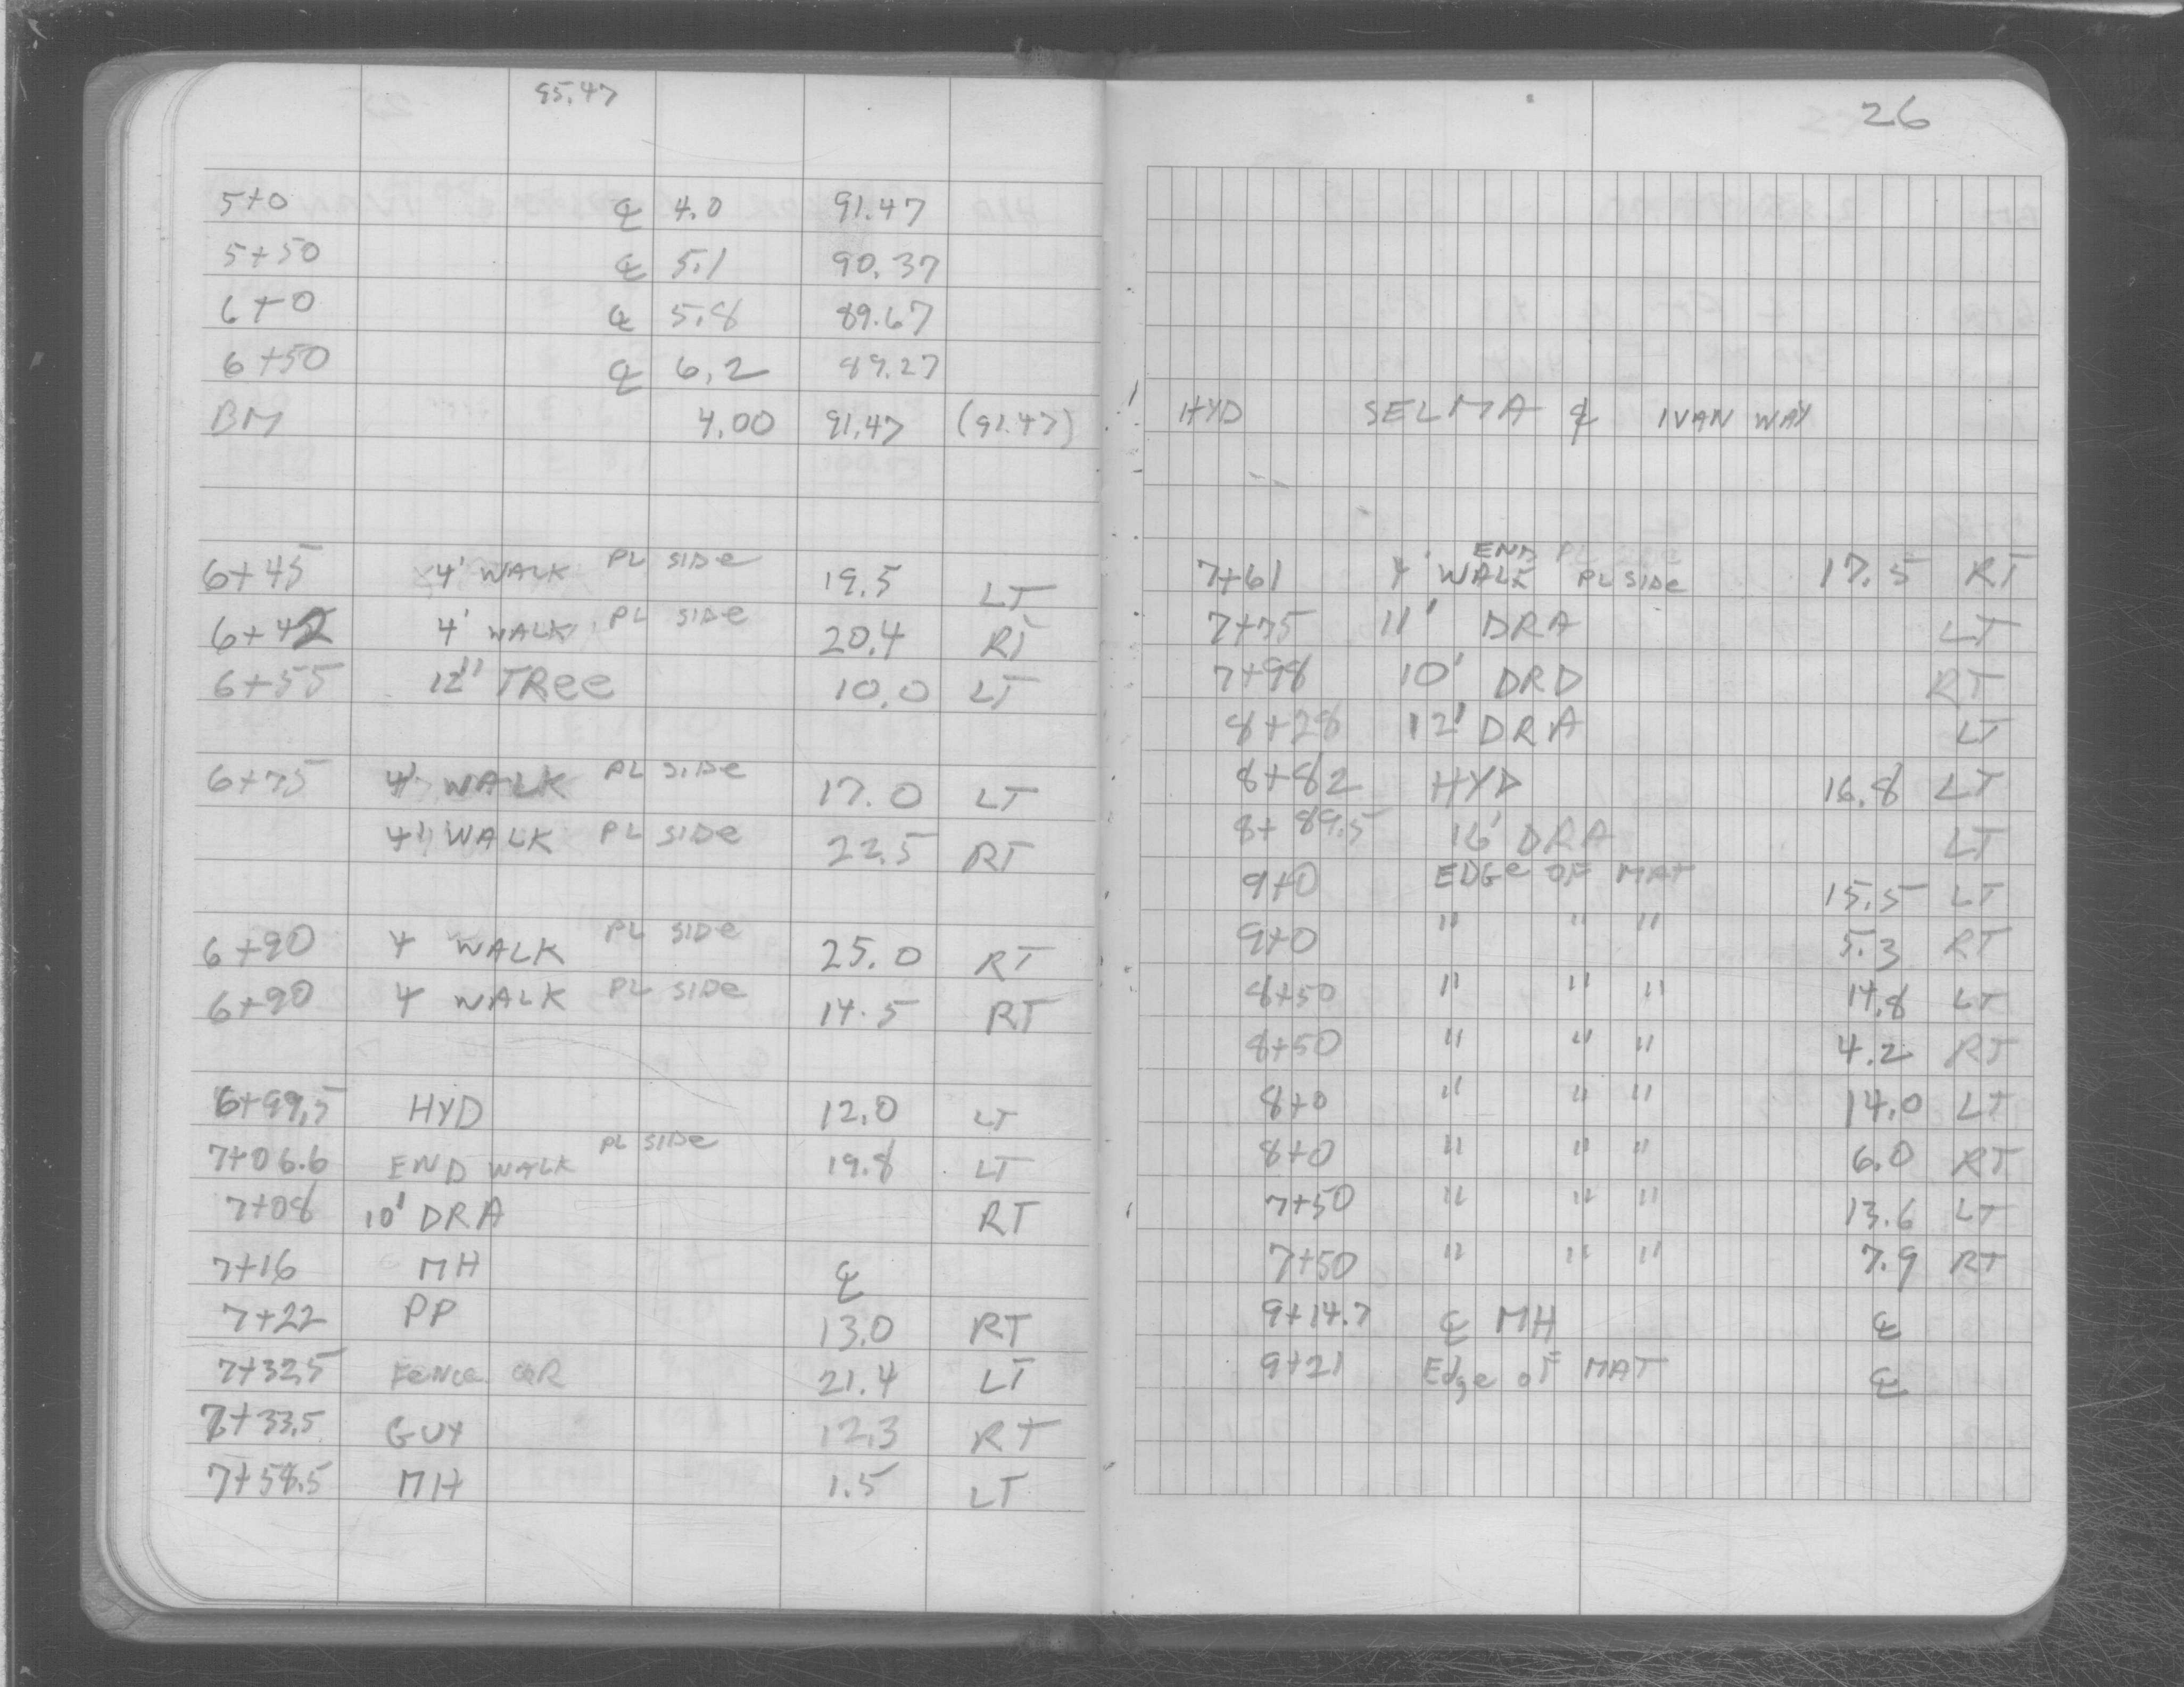 95.47
5+0 ℄ 4.0 91.47
5+50 ℄ 5.1 90.37
6+0 ℄ 5.8 89.67
6+50 ℄ 6.2 89.27
BM 4.00 91.47 (91.47)
6+45 4' WALK PL SIDe 19.5 LT
6+42 4' WALK PL SIDe 20.4 RT
6+55 12" TRee 10.0 LT
6+75 4' WALK PL SIDe 17.0 LT
4' WALK PL SIDe 22.5 RT
6+90 4 WALK PL SIDe 25.0 RT
6+90 4 WALK PL SIDe 14.5 RT
6+99.5 HYD 12.0 LT
7+06.6 END WALK PL SIDe 19.8 LT
7+08 10' DRA RT
7+16 MH ℄
7+22 PP 13.0 RT
7+32.5 FeNce COR 21.4 LT
7+33.5 GUY 12.3 RT
7+58.5 MH 1.5 LT
26
HYD SELMA & IVAN WAY
7+61 4' END WALK PL SIDe 17.5 RT
7+75 11' DRA LT
7+98 10' DRD RT
8+28 12' DRA LT
8+82 HYD 16.8 LT
8+89.5 16' DRA LT
9+0 EDGe OF MAT 15.5 LT
9+0 " " " 5.3 RT
8+50 " " " 14.8 LT
8+50 " " " 4.2 RT
8+0 " " " 14.0 LT
8+0 " " " 6.0 RT
7+50 " " " 13.6 LT
7+50 " " " 7.9 RT
9+14.7 ℄ MH ℄
9+21 Edge oF MAT ℄